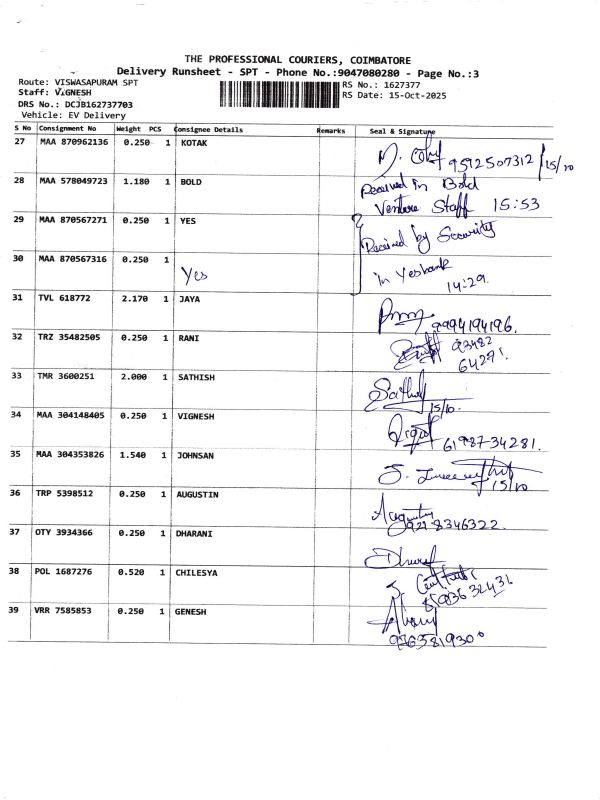 THE PROFESSIONAL COURIERS, COIMBATORE
Delivery Runsheet - SPT - Phone No.:9047080280 - Page No.:3
Route: VISWASAPURAM SPT
Staff: VIGNESH
DRS No.: DCJB162737703
Vehicle: EV Delivery
RS No.: 1627377
RS Date: 15-Oct-2025
S No Consignment No Weight PCS Consignee Details Remarks Seal & Signature
27 MAA 870962136 0.250 1 KOTAK
9592507312 15/10
28 MAA 578049723 1.180 1 BOLD
Received in Bold
Venture Staff 15:53
29 MAA 870567271 0.250 1 YES
Received by Security
30 MAA 870567316 0.250 1
Yes
in Yesbank
14:29
31 TVL 618772 2.170 1 JAYA
9994194196.
32 TRZ 35482505 0.250 1 RANI
93482
64291.
33 TMR 3600251 2.000 1 SATHISH
15/10.
34 MAA 304148405 0.250 1 VIGNESH
61987-34281.
35 MAA 304353826 1.540 1 JOHNSAN
15/10
36 TRP 5398512 0.250 1 AUGUSTIN
9218346322.
37 OTY 3934366 0.250 1 DHARANI
38 POL 1687276 0.520 1 CHILESYA
39 VRR 7585853 0.250 1 GENESH